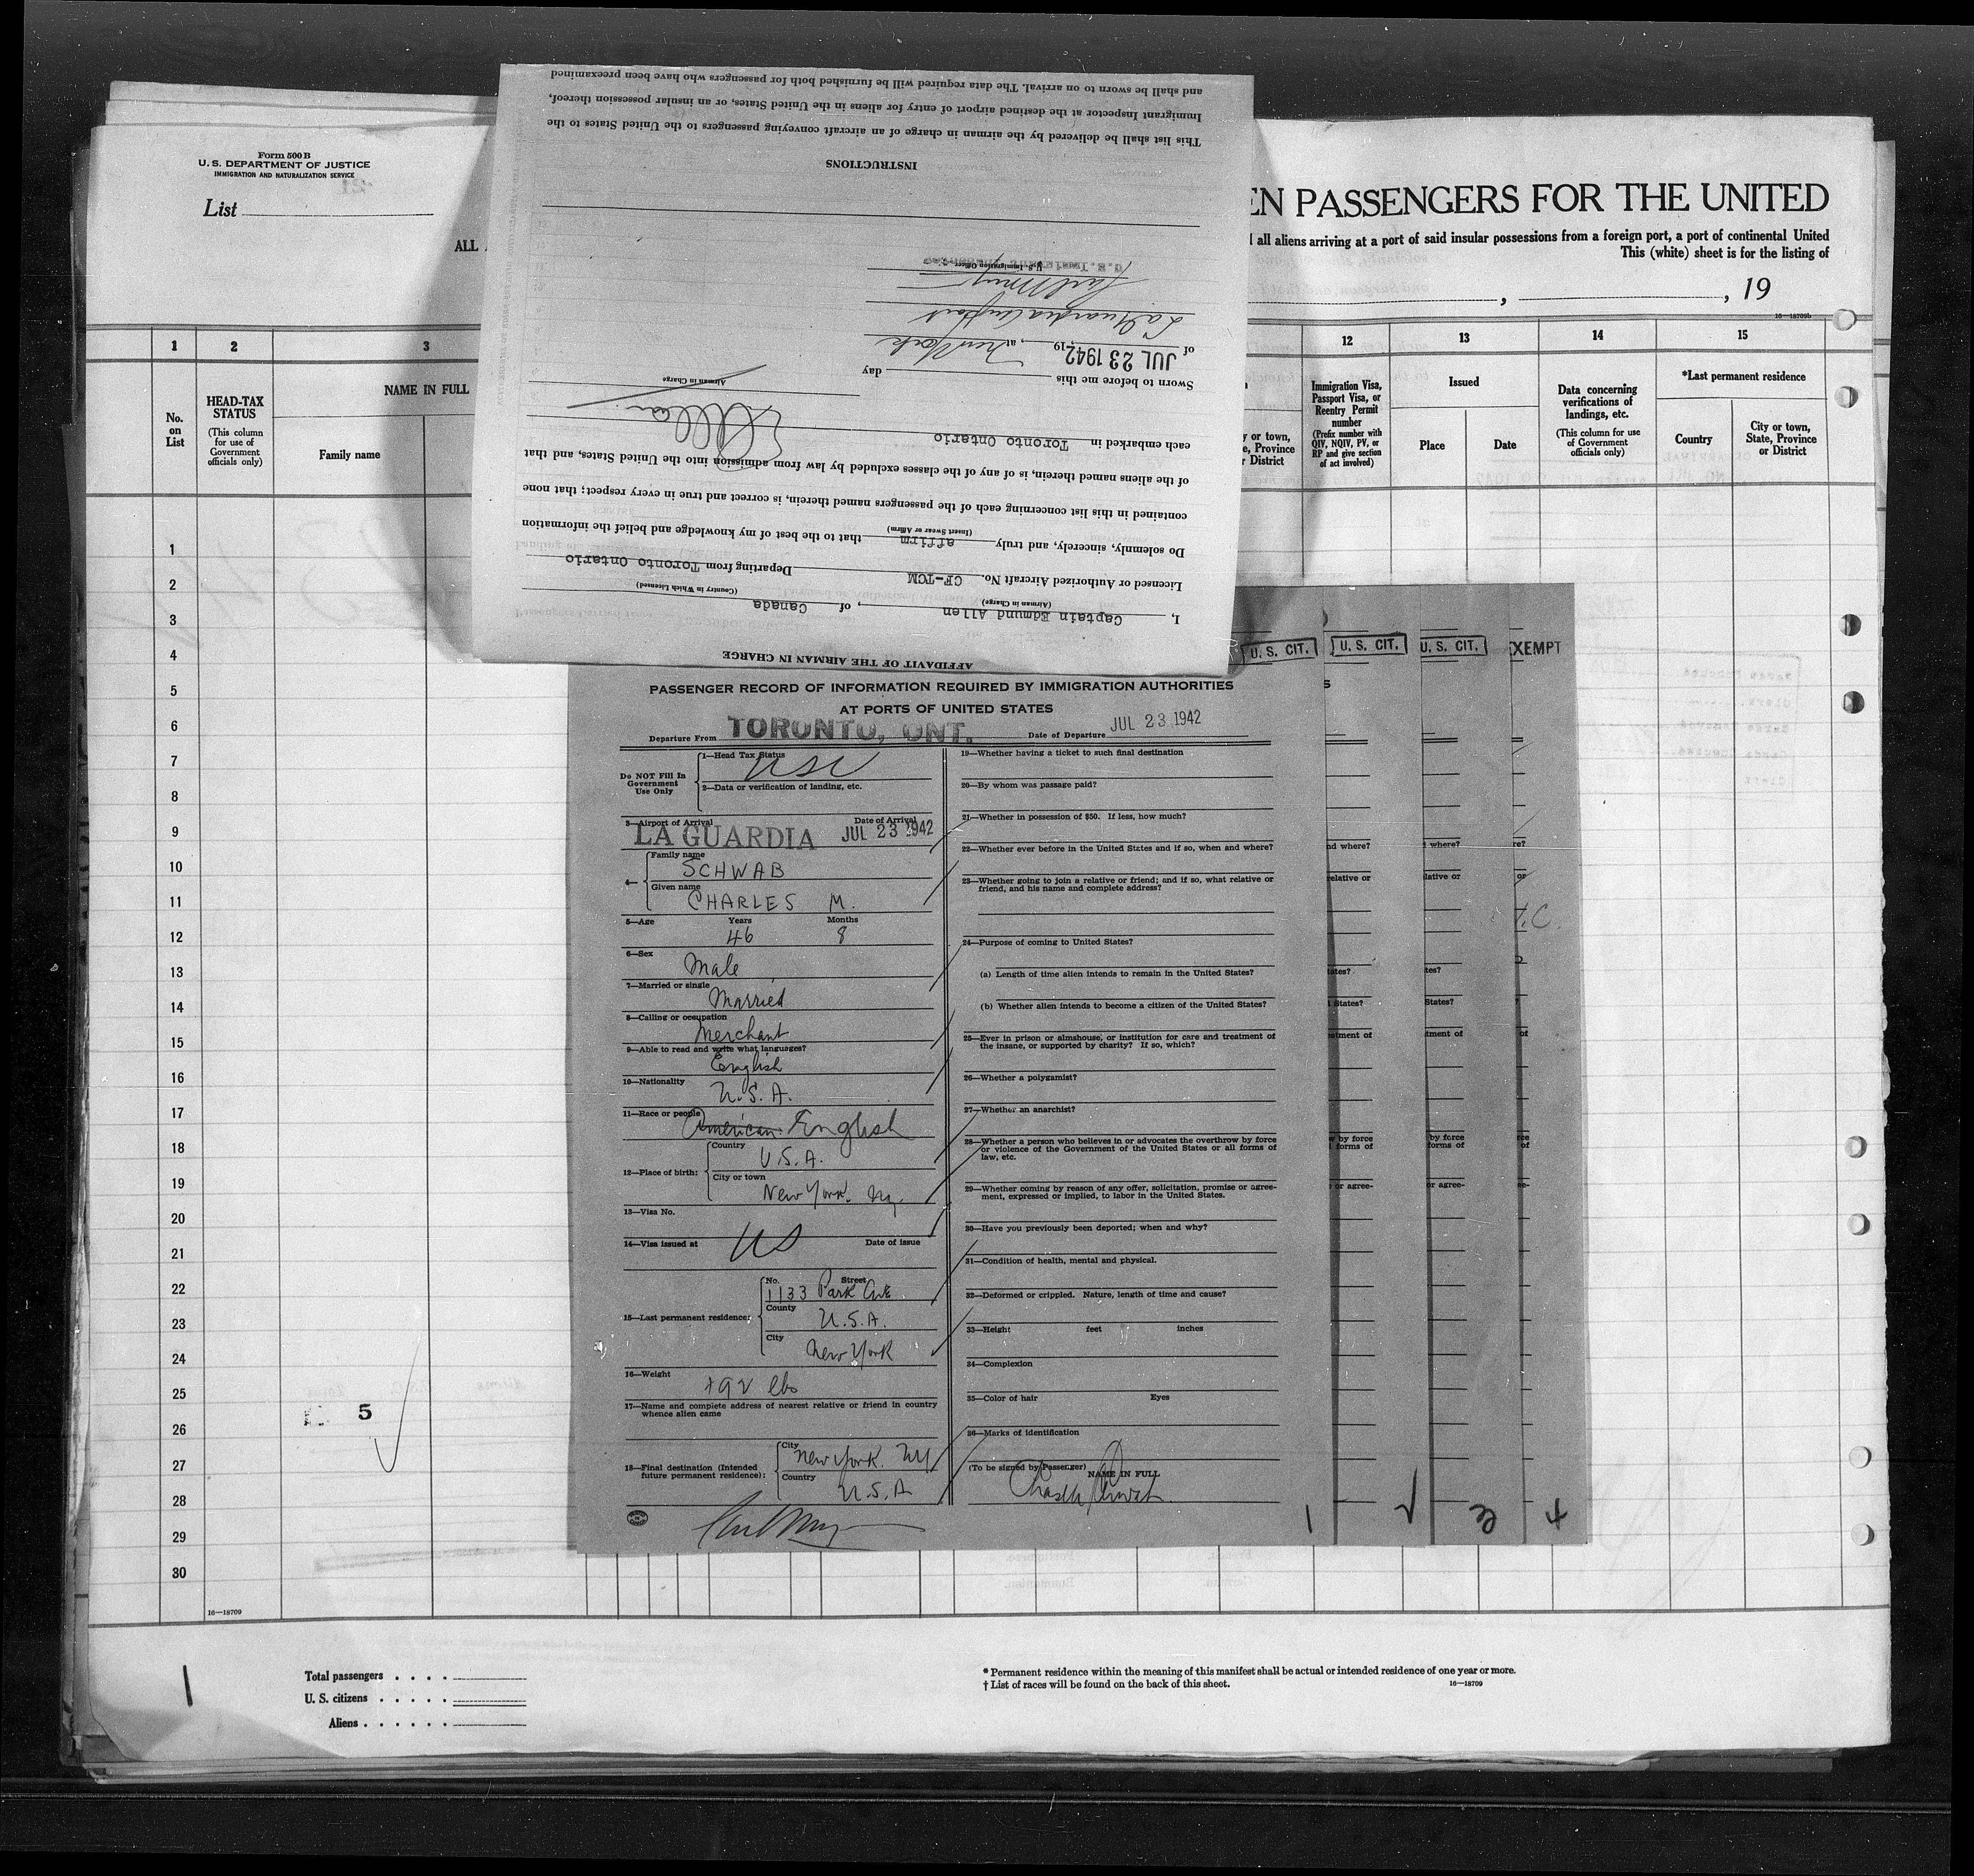 Form 500 B
U. S. DEPARTMENT OF JUSTICE
IMMIGRATION AND NATURALIZATION SERVICE
List
ALL
EN PASSENGERS FOR THE UNITED
all aliens arriving at a port of said insular possessions from a foreign port, a port of continental United
This (white) sheet is for the listing of
, , 19
16—18709b
1 2 3 12 13 14 15
No. on List
HEAD-TAX STATUS
(This column for use of Government officials only)
NAME IN FULL
Family name
y or town, e, Province r District
Immigration Visa, Passport Visa, or Reentry Permit number
(Prefix number with QIV, NQIV, PV, or RP and give section of act involved)
Issued
Place
Date
Data concerning verifications of landings, etc.
(This column for use of Government officials only)
*Last permanent residence
Country
City or town, State, Province or District
1
2
3
4
5
6
7
8
9
10
11
12
13
14
15
16
17
18
19
20
21
22
23
24
25
26
27
28
29
30
5
16—18709
1
Total passengers . . . .
U. S. citizens . . . . .
Aliens . . . . . .
* Permanent residence within the meaning of this manifest shall be actual or intended residence of one year or more.
† List of races will be found on the back of this sheet.
16—18709
AFFIDAVIT OF THE AIRMAN IN CHARGE
I, Captain Edmund Allen, of Canada
(Airman in Charge) (Country in Which Licensed)
Licensed or Authorized Aircraft No. CF-TCM Departing from Toronto Ontario
Do solemnly, sincerely, and truly affirm that to the best of my knowledge and belief the information
(Insert Swear or Affirm)
contained in this list concerning each of the passengers named therein, is correct and true in every respect; that none
of the aliens named therein, is of any of the classes excluded by law from admission into the United States, and that
each embarked in Toronto Ontario
Airman in Charge
Sworn to before me this day
of JUL 23 1942, 19 , at New York
La Guardia Airport
U.S. Immigrant Inspector
U. S. Immigration Officer
INSTRUCTIONS
This list shall be delivered by the airman in charge of an aircraft conveying passengers to the United States to the
Immigrant Inspector at the destined airport of entry for aliens in the United States, or an insular possession thereof,
and shall be sworn to on arrival. The data required will be furnished both for passengers who have been preexamined
U. S. CIT. U. S. CIT. U. S. CIT. EXEMPT
PASSENGER RECORD OF INFORMATION REQUIRED BY IMMIGRATION AUTHORITIES
AT PORTS OF UNITED STATES
Departure From TORONTO, ONT. Date of Departure JUL 23 1942
Do NOT Fill In Government Use Only
1—Head Tax Status USC
2—Data or verification of landing, etc.
3—Airport of Arrival Date of Arrival
LA GUARDIA JUL 23 1942
4— Family name
SCHWAB
Given name
CHARLES M.
5—Age Years Months
46 8
6—Sex
Male
7—Married or single
Married
8—Calling or occupation
Merchant
9—Able to read and write what languages?
English
10—Nationality
U.S.A.
11—Race or people
American English
12—Place of birth:
Country
U.S.A.
City or town
New York. Ny.
13—Visa No.
14—Visa issued at US Date of issue
15—Last permanent residence:
No. Street
1133 Park Ave
County
U.S.A.
City
New York
16—Weight
192 lbs
17—Name and complete address of nearest relative or friend in country
whence alien came
18—Final destination (Intended
future permanent residence):
City
New York. NY
Country
U.S.A
19—Whether having a ticket to such final destination
20—By whom was passage paid?
21—Whether in possession of $50. If less, how much?
22—Whether ever before in the United States and if so, when and where?
23—Whether going to join a relative or friend; and if so, what relative or
friend, and his name and complete address?
24—Purpose of coming to United States?
(a) Length of time alien intends to remain in the United States?
(b) Whether alien intends to become a citizen of the United States?
25—Ever in prison or almshouse, or institution for care and treatment of
the insane, or supported by charity? If so, which?
26—Whether a polygamist?
27—Whether an anarchist?
28—Whether a person who believes in or advocates the overthrow by force
or violence of the Government of the United States or all forms of
law, etc.
29—Whether coming by reason of any offer, solicitation, promise or agree-
ment, expressed or implied, to labor in the United States.
30—Have you previously been deported; when and why?
31—Condition of health, mental and physical.
32—Deformed or crippled. Nature, length of time and cause?
33—Height feet inches
34—Complexion
35—Color of hair Eyes
36—Marks of identification
(To be signed by Passenger) NAME IN FULL
1 2 3 4